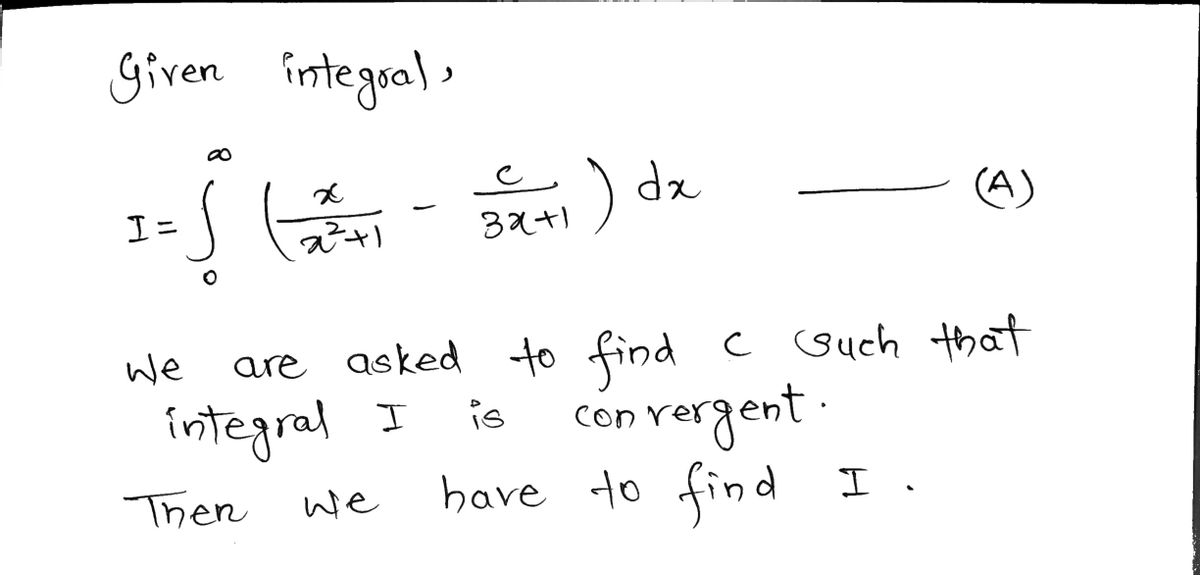 Given integral,
I = ∫₀^∞ ( x/(x²+1) - c/(3x+1) ) dx —— (A)
We are asked to find c such that
integral I is convergent.
Then we have to find I.